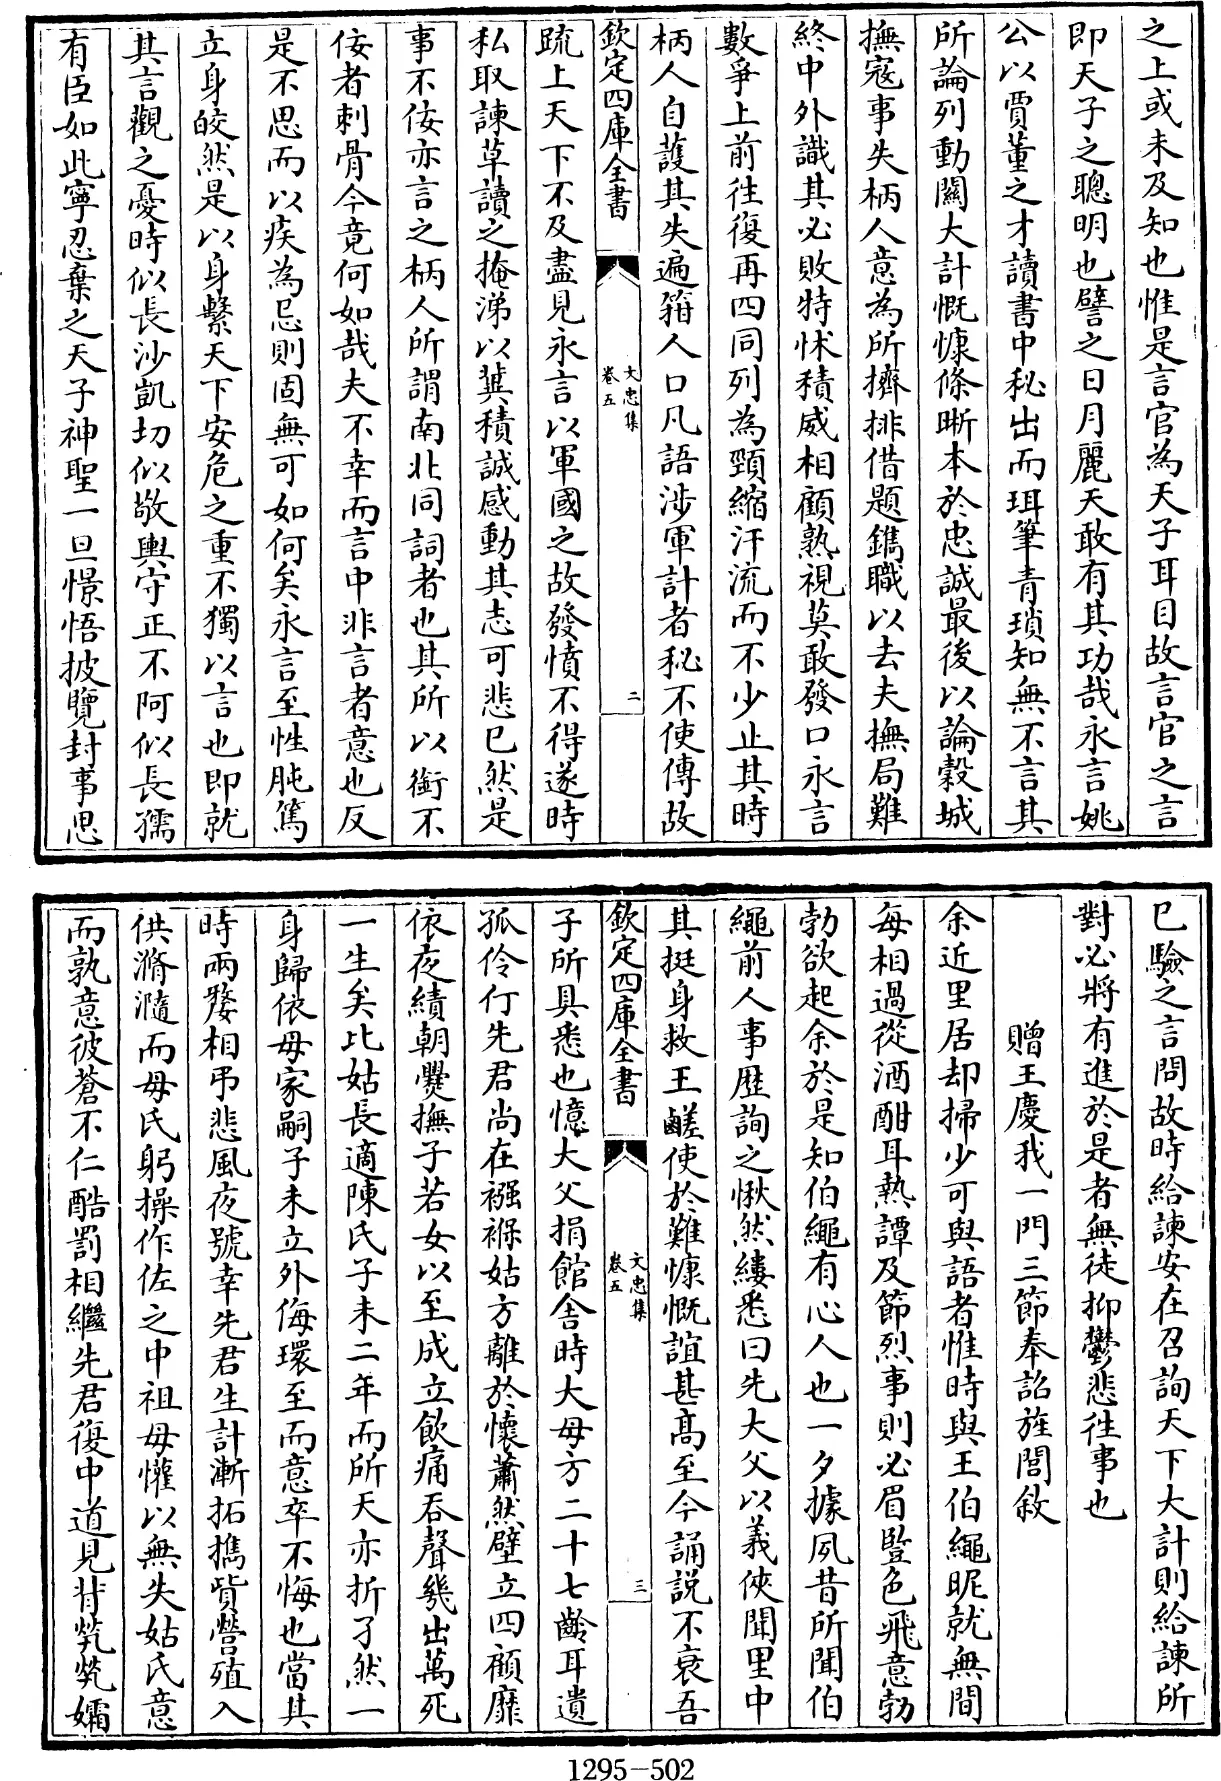 之上或未及知也惟是言官為天子耳目故言官之言
即天子之聰明也譬之日月麗天敢有其功哉永言姚
公以賈董之才讀書中秘出而珥筆青瑣知無不言其
所論列動關大計慨慷條晰本於忠誠最後以論穀城
撫寇事失柄人意為所擠排借題鐫職以去夫撫局難
終中外識其必敗特怵積威相顧熟視莫敢發口永言
數爭上前往復再四同列為頸縮汗流而不少止其時
柄人自護其失遍箝人口凡語涉軍計者秘不使傳故
欽定四庫全書
文忠集
卷五
二
疏上天下不及盡見永言以軍國之故發憤不得遂時
私取諫草讀之掩涕以兾積誠感動其志可悲已然是
事不佞亦言之柄人所謂南北同詞者也其所以銜不
佞者刺骨今竟何如哉夫不幸而言中非言者意也反
是不思而以疾為忌則固無可如何矣永言至性肫篤
立身皎然是以身繫天下安危之重不獨以言也即就
其言觀之憂時似長沙凱切似敬輿守正不阿似長孺
有臣如此寧忍棄之天子神聖一旦憬悟披覽封事思
已驗之言問故時給諫安在召詢天下大計則給諫所
對必將有進於是者無徒抑鬱悲往事也
贈王慶我一門三節奉詔旌閭敘
余近里居却掃少可與語者惟時與王伯繩昵就無間
每相過從酒酣耳熱譚及節烈事則必眉豎色飛意勃
勃欲起余於是知伯繩有心人也一夕據夙昔所聞伯
繩前人事歷詢之愀然縷悉曰先大父以義俠聞里中
其挺身救王鹺使於難慷慨誼甚高至今誦說不衰吾
欽定四庫全書
文忠集
卷五
三
子所具悉也憶大父捐館舍時大母方二十七齡耳遺
孤伶仃先君尚在襁褓姑方離於懷蕭然壁立四顧靡
依夜績朝爨撫子若女以至成立飲痛吞聲幾出萬死
一生矣比姑長適陳氏子未二年而所天亦折孑然一
身歸依母家嗣子未立外侮環至而意卒不悔也當其
時兩嫠相弔悲風夜號幸先君生計漸拓擕貲營殖入
供滫瀡而母氏躬操作佐之中祖母懽以無失姑氏意
而孰意彼蒼不仁酷罰相繼先君復中道見背煢煢孀
1295-502